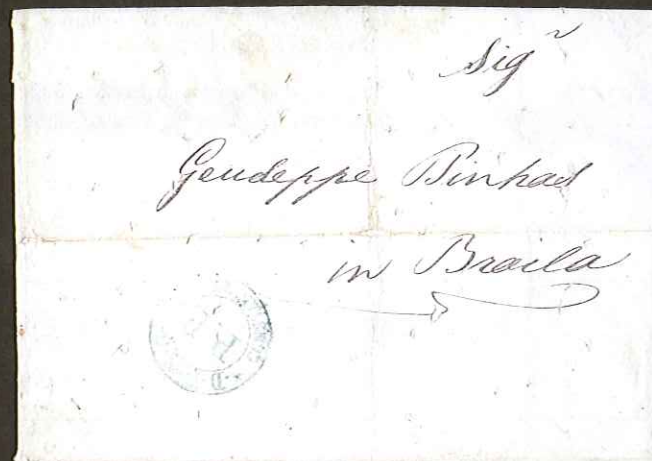 Sigr
Geudeppe Pinhas
in Braila